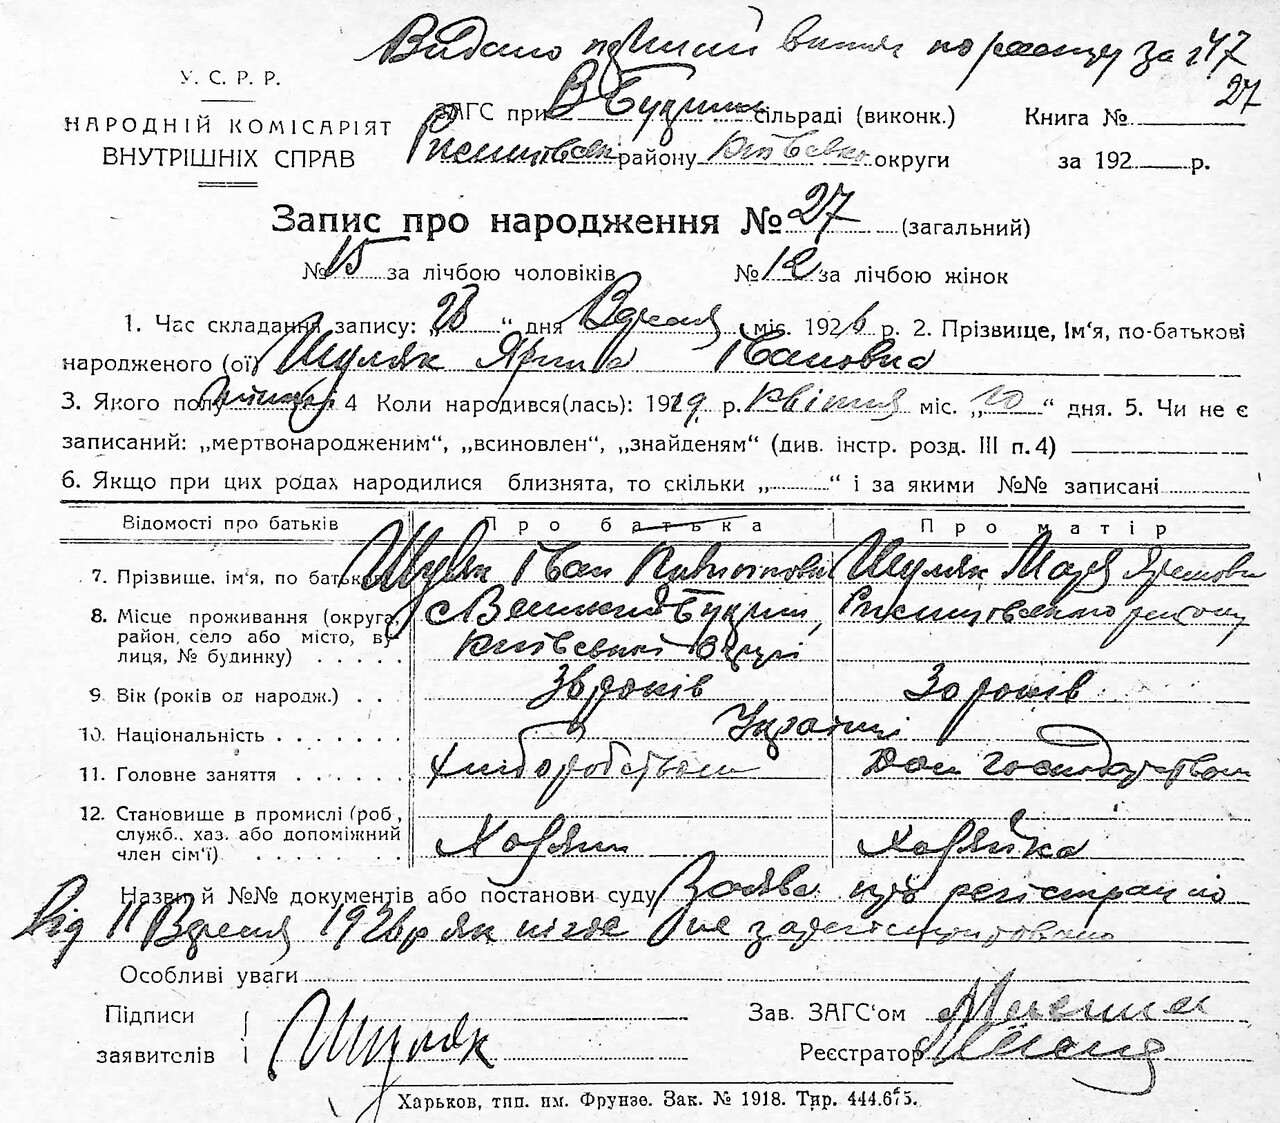 Видано повний витяг по реєстру за № 47
27
У. С. Р. Р.
НАРОДНІЙ КОМІСАРІЯТ
ВНУТРІШНІХ СПРАВ
ЗАГС при В Букрин сільраді (виконк.)
Ржищівськ району Київсько округи
Книга №
за 192 р.
Запис про народження № 27 (загальний)
№ 15 за лічбою чоловіків № 12 за лічбою жінок
1. Час складання запису: „23“ дня Вересня міс. 1926 р. 2. Прізвище, Ім'я, по-батькові
народженого (ої) Шуляк Ярина Івановна
3. Якого полу жіночої 4 Коли народився(лась): 1919 р. квітня міс. „10“ дня. 5. Чи не є
записаний: „мертвонародженим“, „всиновлен“, „знайденям“ (див. інстр. розд. III п. 4)
6. Якщо при цих родах народилися близнята, то скільки „ “ і за якими №№ записані
Відомості про батьків Про батька Про матір
7. Прізвище, ім'я, по батькові Шуляк Іван Шуляк Марія
8. Місце проживання (округа, с Великий Букрин, Ржищівського району
район, село або місто, ву Київської округи
лиця, № будинку)
9. Вік (років од народж.) років 30 років
10. Національність Українці
11. Головне заняття хліборобством Дом господарством
12. Становище в промислі (роб.,
служб., хаз. або допоміжний Хазяїн Хазяйка
член сім'ї)
Назви й №№ документів або постанови суду Заява про регістрацію
від 11 Вересня 1926 р як ніде не зарегистровано
Особливі уваги
Підписи Зав. ЗАГС'ом
заявителів Шуляк Реєстратор
Харьков, тип. им. Фрунзе. Зак. № 1918. Тир. 444.675.